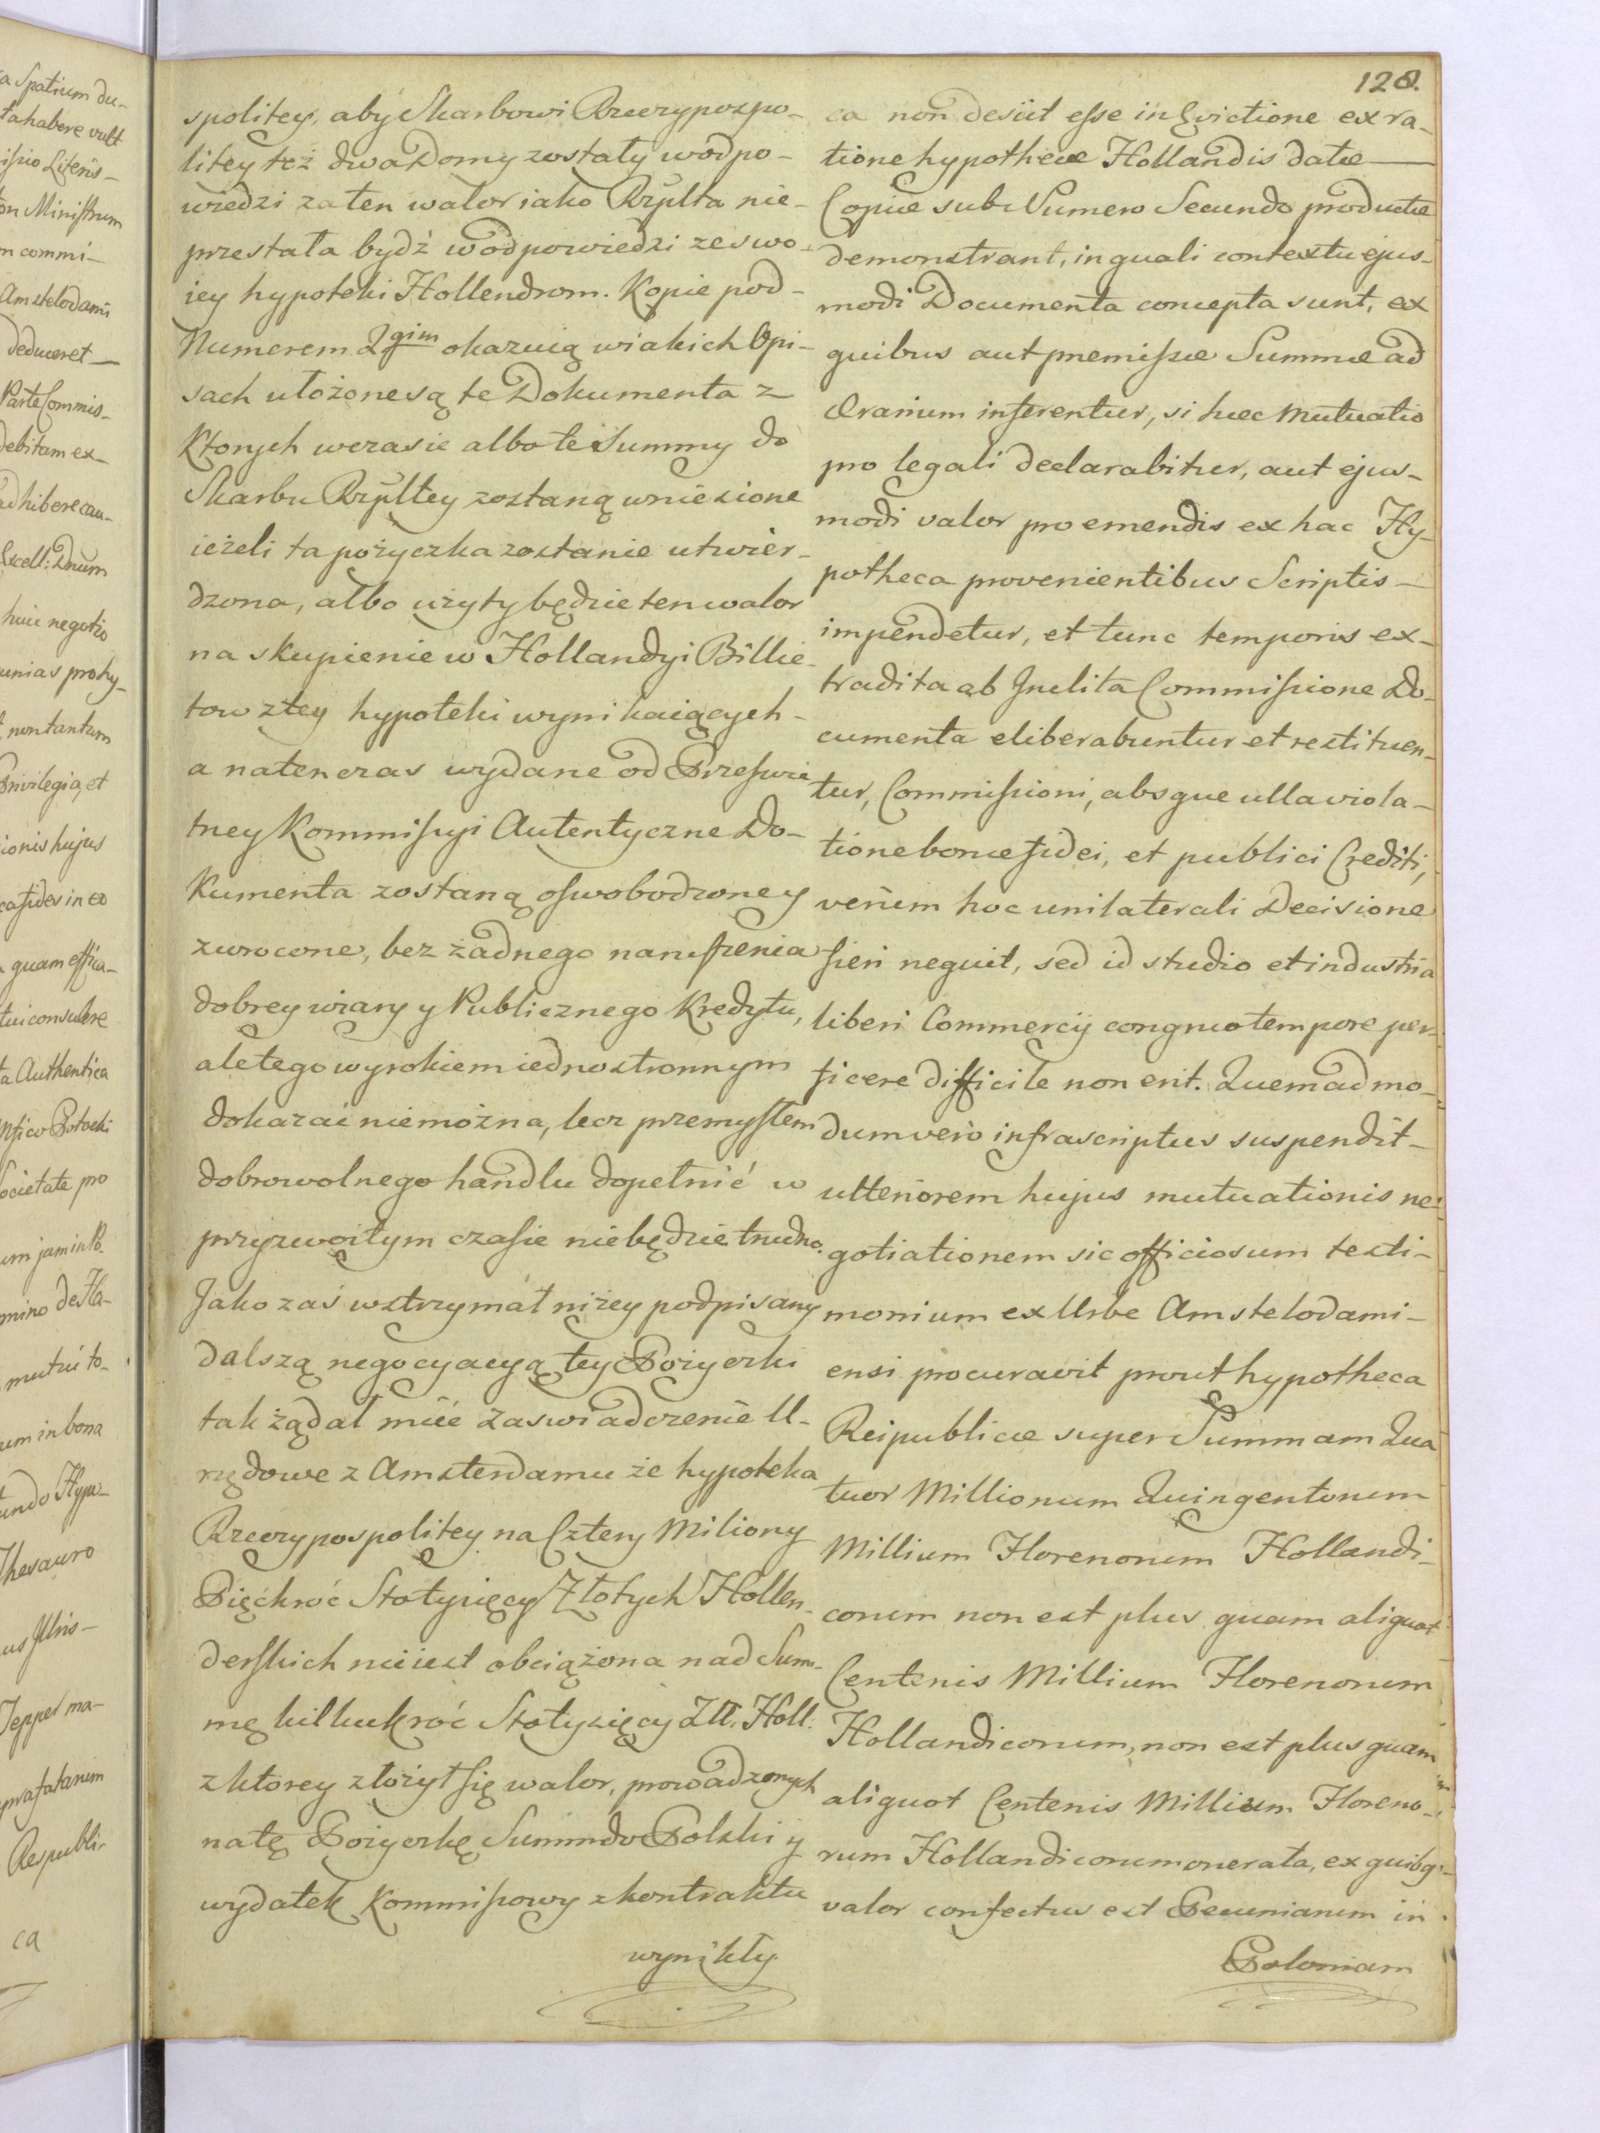 a Spatium du-
ta habere vult
issio Literis-
on Ministrum
m commi-
Amstelodami
deduceret-
Parte Commis-
debitam ex-
adhibere cau-
Excell: Dnum
huic negotio
unias pro hy-
non tantum
Privilegia, et
ionis hujus
ca fides in eo
quam effica-
tui consulere
ta Authentica
Potocki
ocietate pro
um jam in Po
mino de Ha-
mutui to-
um in bona
undo Hypo-
Thesauro
us Illris-
Tepper ma-
prafatarum
Respubli-
ca
128.
spolitey, aby Skarbowi Rzeczypospo-
litey też dwa Domy zostały wodpo-
wiedzi za ten walor iako Rzplta nie-
przestała bydź wodpowiedzi ze swo-
iey hypoteki Hollendrom. Kopie pod-
Numerem 2gim okazuią wiakich Opi-
sach ułożone są te Dokumenta z
Ktorych wczasie albo te Summy do
Skarbu Rzpltey zostaną wniesione
ieżeli ta pożyczka zostanie utwier-
dzona, albo użyty będzie ten walor
na skupienie w Hollandyi Billie-
tow z tey hypoteki wynikaiących-
a natenczas wydane od Przeswie
tney Kommissyi Autentyczne Do-
kumenta zostaną oswobodzone y
zwrocone, bez żadnego naruszenia
dobrey wiary y Publicznego Kredytu,
ale tego wyrokiem iednostronnym
dokazać niemożna, lecz przemysłem
dobrowolnego handlu dopełnić w
przyzwoitym czasie niebędzie trudno.
Jako zaś wstrzymał niżey podpisany
dalszą negocyacyą tey Pożyczki
tak żądał mieć zaswiadczenie U-
rzędowe z Amsterdamu że hypoteka
Rzeczypospolitey na Cztery Miliony
Pięćkroć Stotysięcy Złotych Hollen-
derskich nieiest obciążona nad Sum-
mę kilkukroć Stotysięcy Zll. Holl.
z ktorey złożył się walor, prowadzonych
natę Pożyczkę Summ do Polski y
wydatek Kommissowy z kontraktu
wynikły
ca non desiit esse in Evictione ex ra-
tione hypothecæ Hollandis datæ-
Copiæ sub Numero Secundo productæ
demonstrant, in quali contextu ejus-
modi Documenta concepta sunt, ex
quibus aut præmissæ Summæ ad
Ærarium inferentur, si hæc Mutuatio
pro legali declarabitur, aut ejus-
modi valor pro emendis ex hac Hy-
potheca provenientibus Scriptis-
impendetur, et tunc temporis ex-
tradita ab Inclita Commissione Do-
cumenta eliberabuntur et restituen-
tur, Commissioni, absque ulla viola-
tione bonæ fidei, et publici Crediti,
verùm hoc unilaterali Decisione
fieri nequit, sed id studio et industria
liberi Commercij congruo tempore per-
ficere difficile non erit. Quemadmo-
dum verò infrascriptus suspendit-
ulteriorem hujus mutuationis ne-
gotiationem sic officiosum testi-
monium ex Urbe Amstelodami-
ensi procuravit prout hypotheca
Reipublicæ super Summam Qua
tuor Millionum Quingentorum
Millium Florenorum Hollandi-
corum non est plus quam aliquot
Centenis Millium Florenorum
Hollandicorum, non est plus quam
aliquot Centenis Millium Floreno-
rum Hollandicorum onerata, ex quibq.
valor confectus est Pecuniarum in
Poloniam